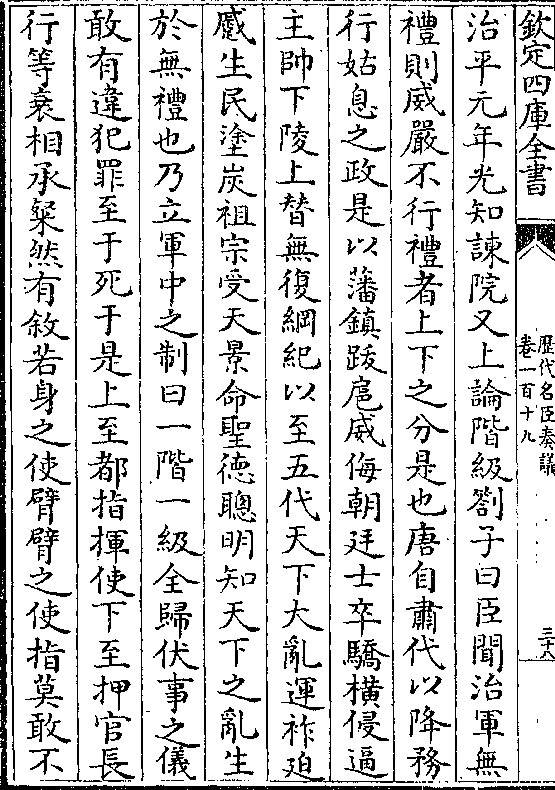 欽定四庫全書
歷代名臣奏議
卷一百十九
三十八
治平元年光知諫院又上論階級劄子曰臣聞治軍無
禮則威嚴不行禮者上下之分是也唐自肅代以降務
行姑息之政是以藩鎮跋扈威侮朝廷士卒驕橫侵逼
主帥下陵上替無復綱紀以至五代天下大亂運祚廹
蹙生民塗炭祖宗受天景命聖德聰明知天下之亂生
於無禮也乃立軍中之制曰一階一級全歸伏事之儀
敢有違犯罪至于死于是上至都指揮使下至押官長
行等衰相承粲然有敘若身之使臂臂之使指莫敢不